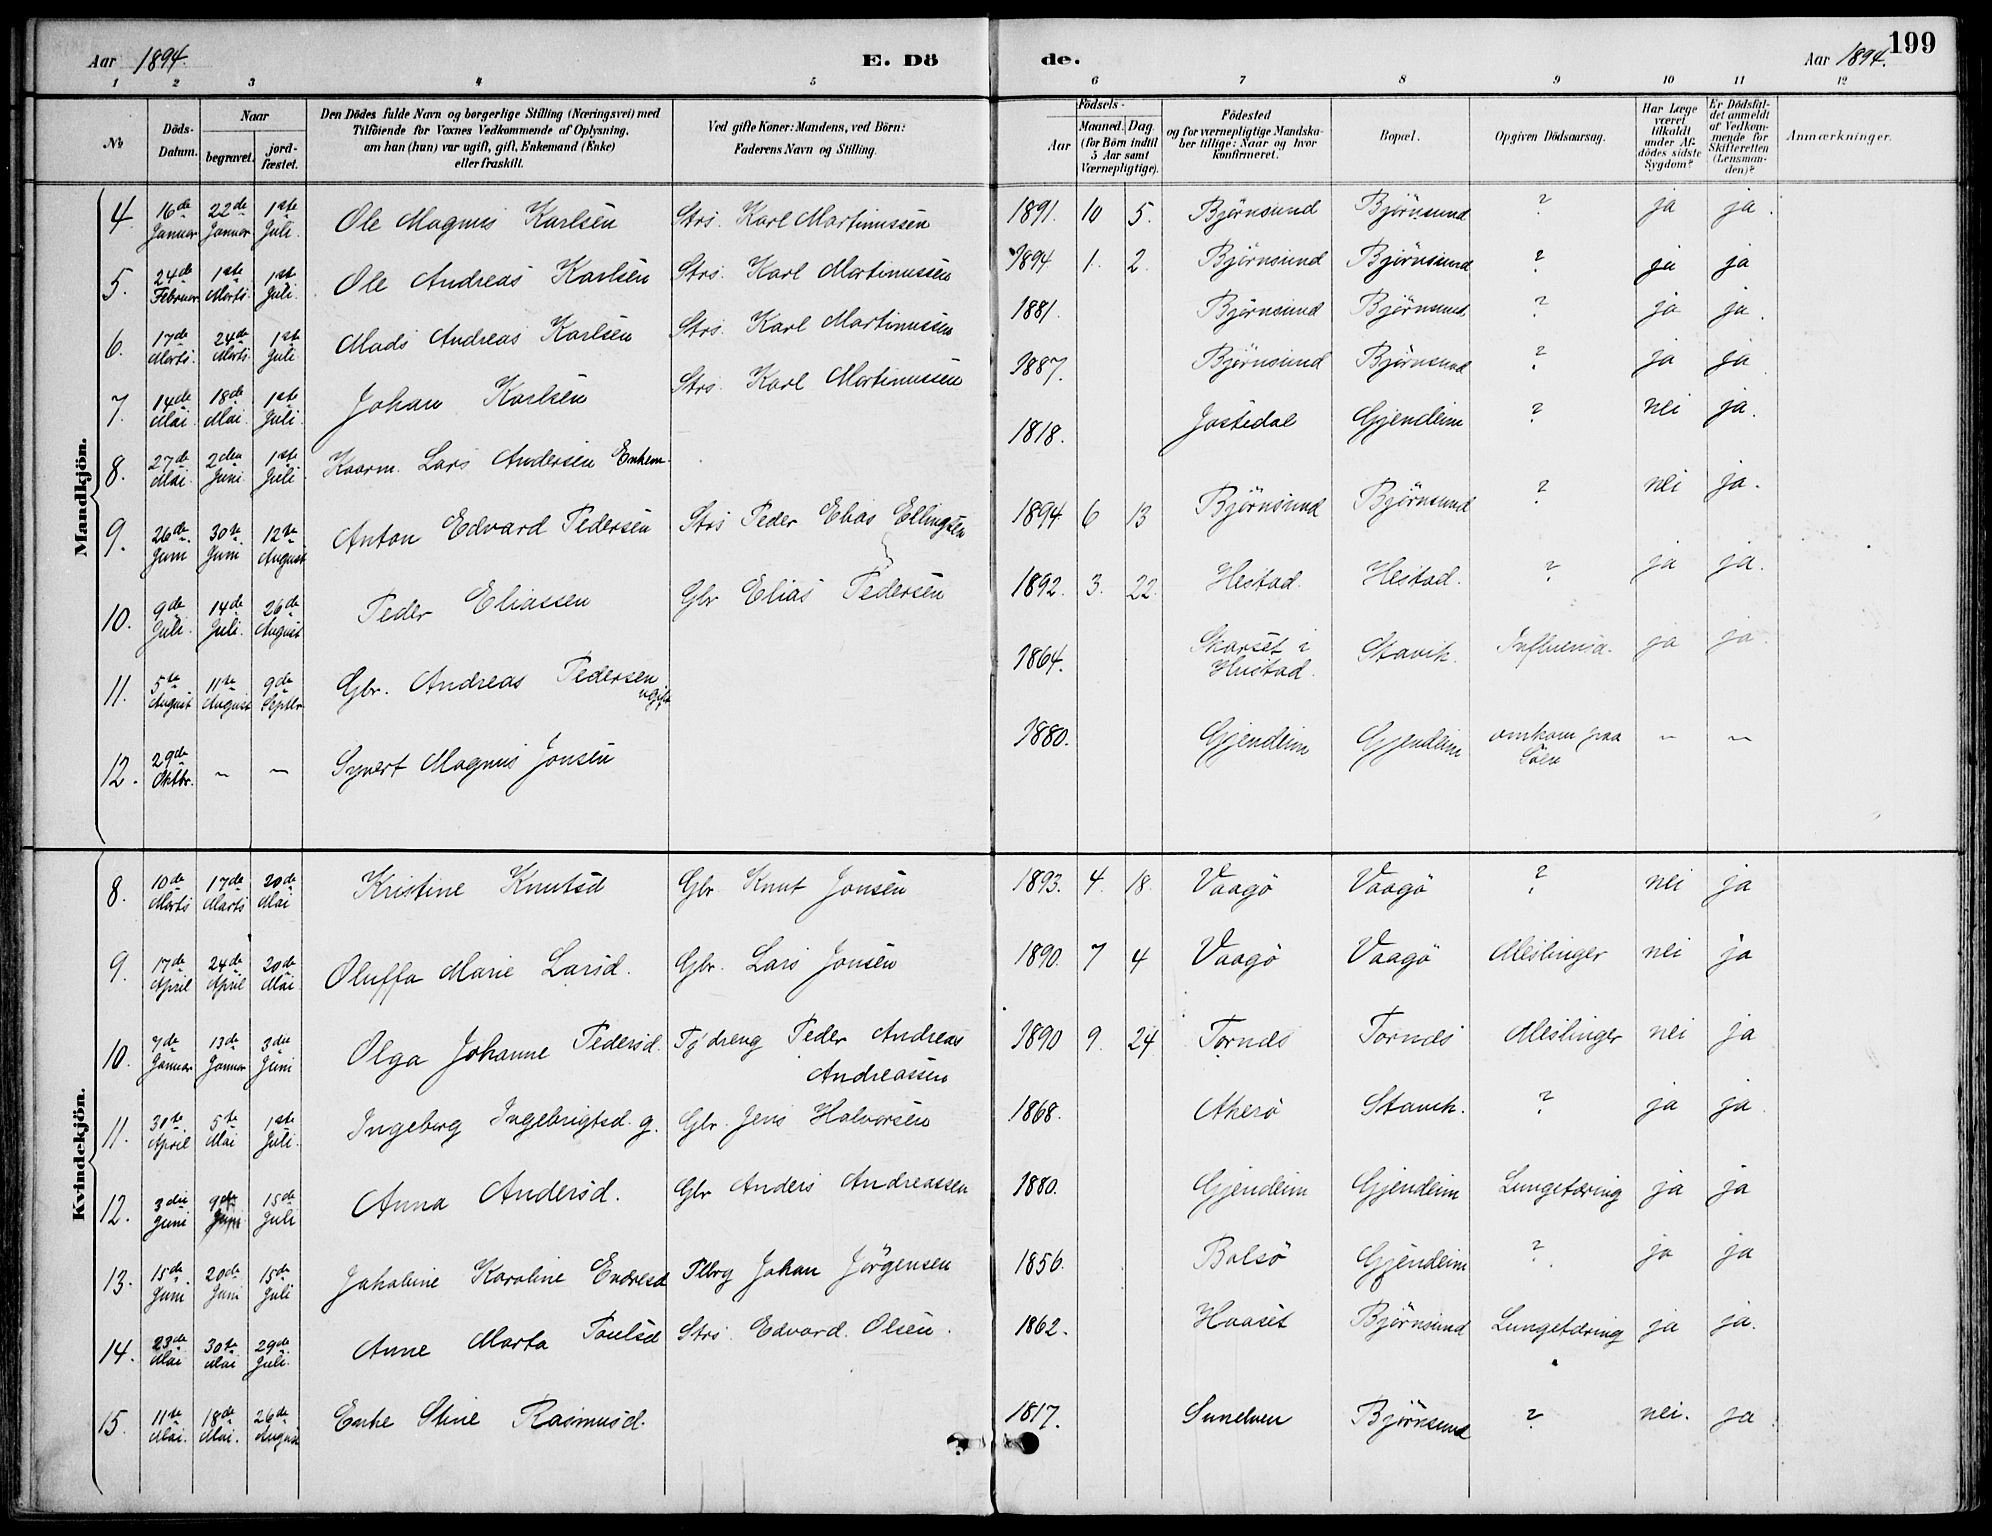 Aar 1894. E. Döde. Aar 1894. 199
1 2 3 4 5 6 7 8 9 10 11 12
№ Döds-Datum. Naar begravet. jord-fæstet. Den Dödes fulde Navn og borgerlige Stilling (Næringsvei) med Tilföiende for Voxnes Vedkommende af Oplysning, om han (hun) var ugift, gift, Enkemand (Enke) eller fraskilt. Ved gifte Koner: Mandens, ved Börn: Faderens Navn og Stilling. Födsels- Aar Maaned. Dag (for Börn indtil 5 Aar samt Værnepligtige). Födested og for værnepligtige Mandskaber tillige: Naar og hvor konfirmeret. Bopæl. Opgiven Dödsaarsag. Har Læge været tilkaldt under Afdödes sidste Sygdom? Er Dödsfaldet anmeldt af Vedkommende for Skifteretten (Lensmanden)? Anmærkninger.
Mandkjön.
4. 16de Januar 22de Januar 1ste Juli. Ole Magnus Karlsen Strs. Karl Martinussen 1891. 10 5. Björnsund Björnsund ? ja ja.
5. 24de Februar 1ste Marts. 1ste Juli. Ole Andreas Karlsen Strs. Karl Martinussen 1894 1. 2. Björnsund Björnsund ? ja ja
6. 17de Marts. 24de Marts 1ste Juli Mads Andreas Karlsen Strs. Karl Martinussen 1881. Björnsund Björnsund. ? ja ja.
7. 14de Mai. 18de Mai 1ste Juli. Johan Karlsen Strs. Karl Martinussen 1887. Björnsund Björnsund ? ja ja
8. 27de Mai. 2den Juni 1ste Juli. Kaarm. Lars Andersen Enkem. 1818. Jostedal Gjendeim ? nei ja.
9. 26de Juni 30te Juni 12te August Anton Edvard Pedersen Strs Peder Elias Ellingsen 1894 6 13 Björnsund Björnsund ? nei ja.
10. 9de Juli. 14de Juli. 26de August Peder Eliassen Gbr Elias Pedersen 1892. 3. 22. Hestad. Hestad. ? ja ja.
11. 5te August 11te August 9de Septbr Gbr. Andreas Pedersen ugift 1864. Skarset i Hustad. Stavik. Influensa. ja ja.
12. 29de Oktbr. ~ ~ Syvert Magnus Jonsen 1880. Gjendeim Gjendeim omkom paa Söen ~ ~
Kvindekjön.
8. 10de Marts 17de Marts 20de Mai Kristine Knutsd Gbr Knut Jonsen 1893. 4. 18. Vaagö Vaagö ? nei ja
9. 17de April 24de April 20de Mai Oluffa Marie Larsd. Gbr. Lars Jonsen 1890. 7 4 Vaagö Vaagö Meslinger nei ja
10. 7de Januar 13de Januar 3die Juni Olga Johanne Pedersd. Tj'dreng Peder Andreas Andreassen 1890 9. 24 Tornes Tornes Meslinger nei ja
11. 30te April 5te Mai 1ste Juli. Ingeborg Ingebrigtsd. g. Gbr. Jens Halvorsen 1868. Akerö Stavik. ? ja ja.
12. 3die Juni 9de Juni 15de Juli Anna Andersd. Gbr Anders Andreassen 1880. Gjendeim Gjendeim Lungetæring ja ja
13. 15de Juni 20de Juni 15de Juli Jakobine Karoline Endresd Plbrg Johan Jörgensen 1856. Bolsö Gjendeim ? ja ja
14. 23de Mai 30te Mai 29de Juli. Anne Marta Poulsd Strs. Edvard. Olsen. 1862. Haaset Björnsund Lungetæring ja ja.
15. 11te Mai. 18de Mai. 26de August Enke Stine Rasmusd. 1817. Sunelven Björnsund ? nei. ja.